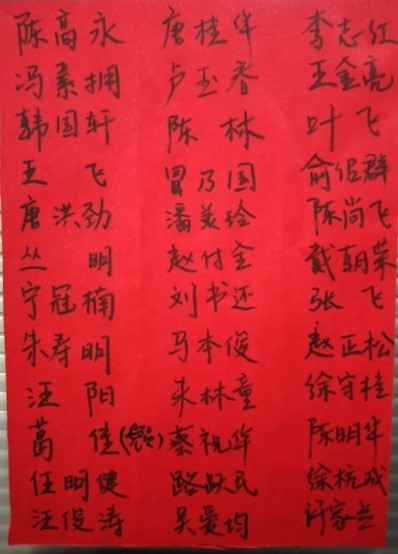 陈高永 唐桂华 李志红
冯素拥 卢玉春 王金亮
韩国轩 陈林 叶飞
王飞 冒乃国 俞佀群
唐洪劲 潘美玲 陈尚飞
丛明 赵付全 戴朝荣
宁冠楠 刘书还 张飞
朱寿明 马本俊 赵正松
汪阳 朱林童 徐守桂
葛佳 蔡祝华 陈明华
任明健 路跃民 徐杭成
汪俊涛 吴爱均 许家兰